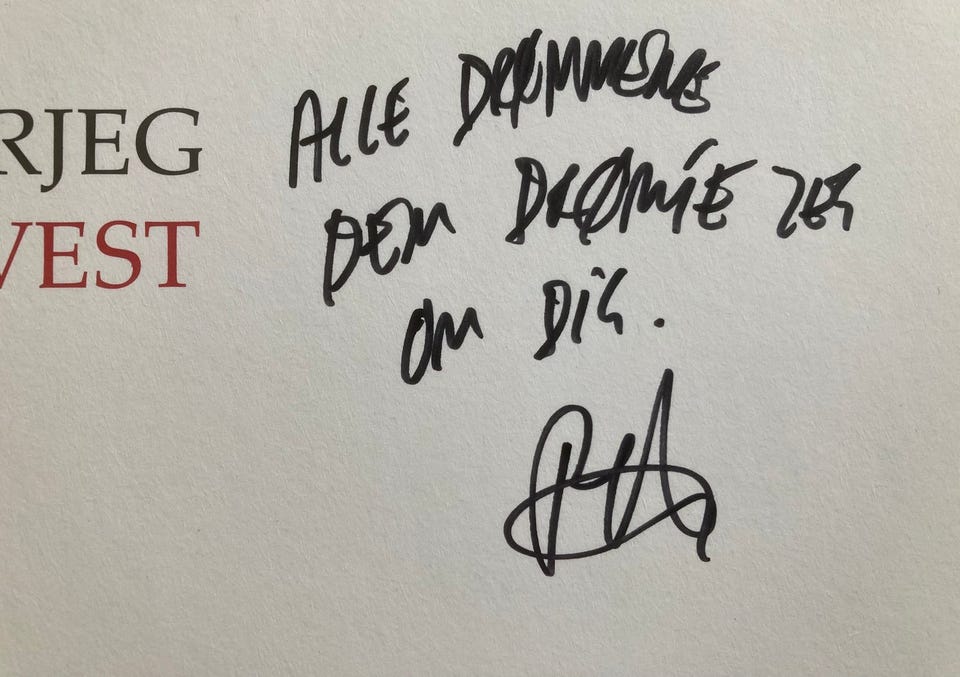 RJEG
VEST
ALLE DRØMMENE
DEM DRØMTE JEG
OM DIG.